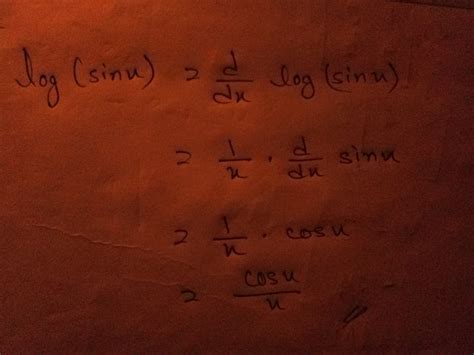 log (sinx) = d/dx log (sinx)
= 1/x · d/dx sinx
= 1/x · cosx
= cosx/x